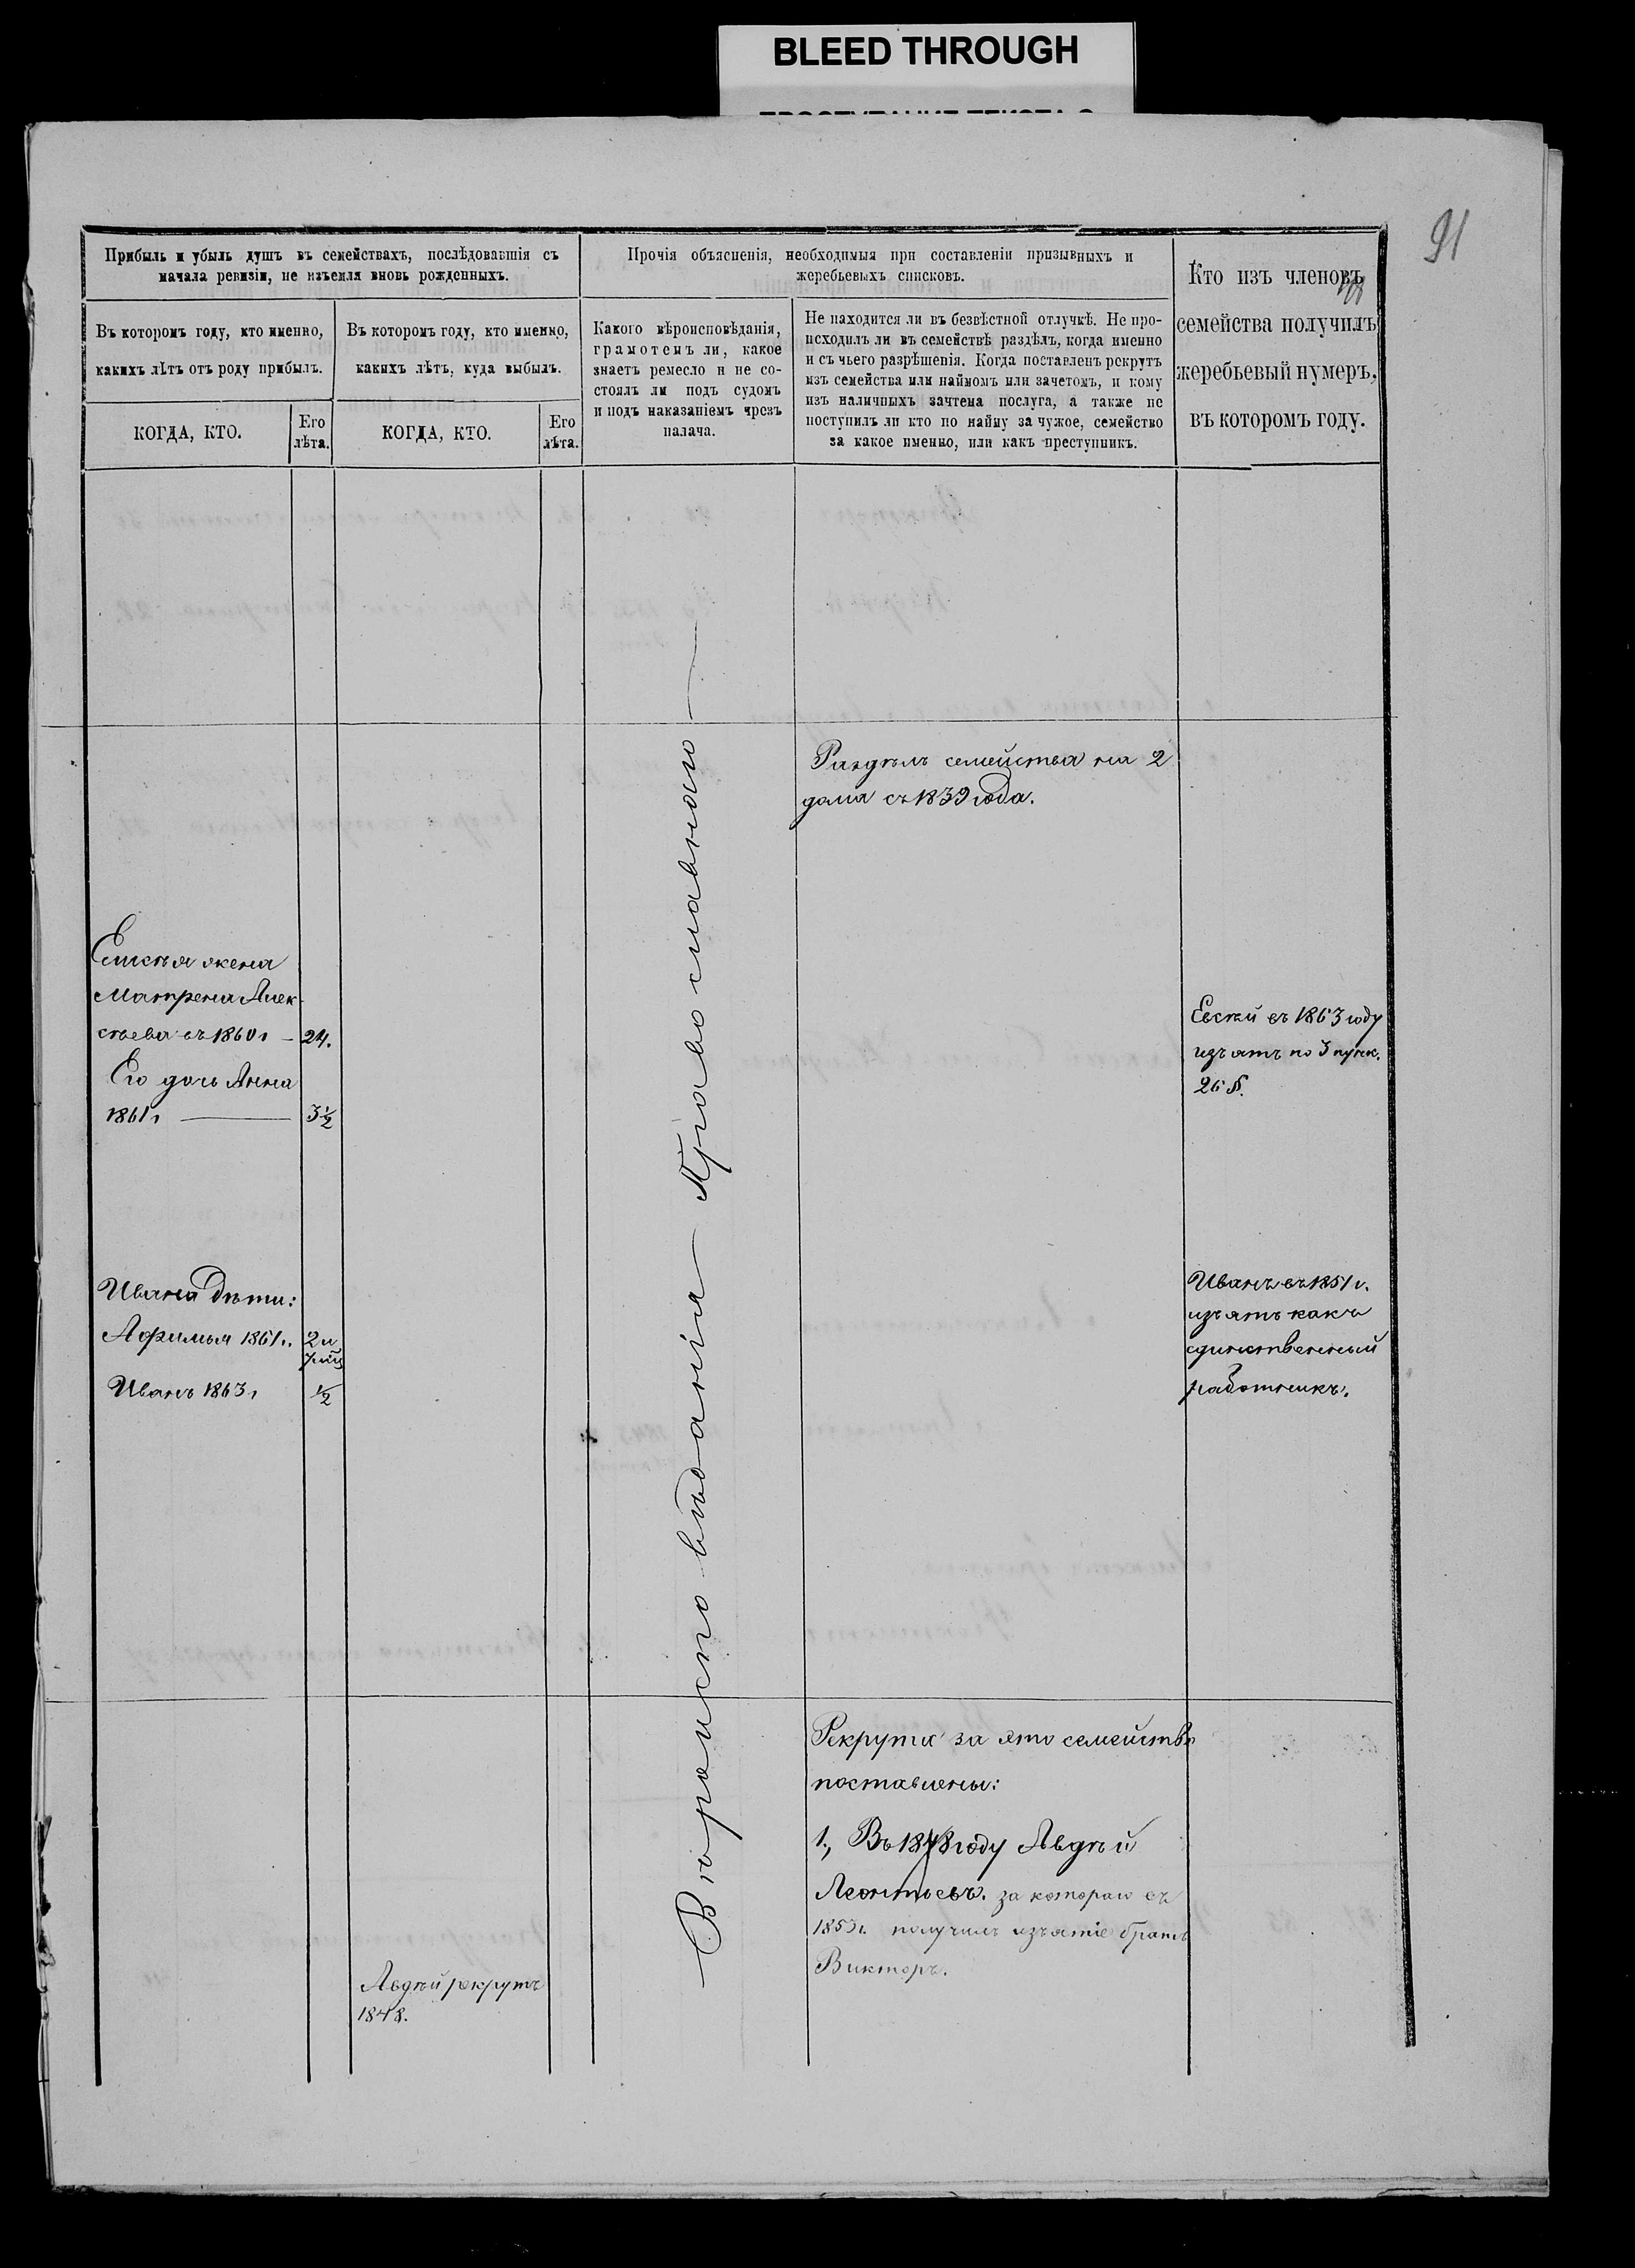 BLEED THROUGH
91
Прибыль и убыль душъ въ семействахъ, послѣдовавшія съ
начала ревизіи, не изъемля вновь рожденныхъ.
Въ которомъ году, кто именно,
какихъ лѣтъ отъ роду прибылъ.
КОГДА, КТО.
Его
лѣта.
Въ которомъ году, кто именно,
какихъ лѣтъ, куда выбылъ.
КОГДА, КТО.
Его
лѣта.
Прочія объясненія, необходимыя при составленіи призывныхъ и
жеребьевыхъ списковъ.
Какого вѣроисповѣданія,
грамотенъ ли, какое
знаетъ ремесло и не со-
стоялъ ли подъ судомъ
и подъ наказаніемъ чрезъ
палача.
Не находится ли въ безвѣстной отлучкѣ. Не про-
исходилъ ли въ семействѣ раздѣлъ, когда именно
и съ чьего разрѣшенія. Когда поставленъ рекрутъ
изъ семейства или наймомъ или зачетомъ, и кому
изъ наличныхъ зачтена послуга, а также не
поступилъ ли кто по найму за чужое, семейство
за какое именно, или какъ преступникъ.
Кто изъ членовъ
семейства получилъ
жеребьевый нумеръ,
въ которомъ году.
Раздѣлъ семейства на 2
дома съ 1839 года.
жена
Матрена Алек-
сѣева съ 1860 г – 24.
Его дочь Анна
1861 г — 3 ½
Евсѣй въ 1863 году
изъятъ по 3 пунк.
26 §.
Ивана дѣти:
Афимья 1861 г. 2 и
Иванъ 1863 г ½
Иванъ въ 1851 г.
изъятъ какъ
единственный
работникъ.
Вѣроисповѣданія — Православнаго —
Рекрута за это семейство
поставлены:
1, Въ 1848 году Авдѣй
Леонтьевъ. за котораго въ
1853 г. получилъ изъятіе братъ
Викторъ.
Авдѣй рекрутъ
1848.